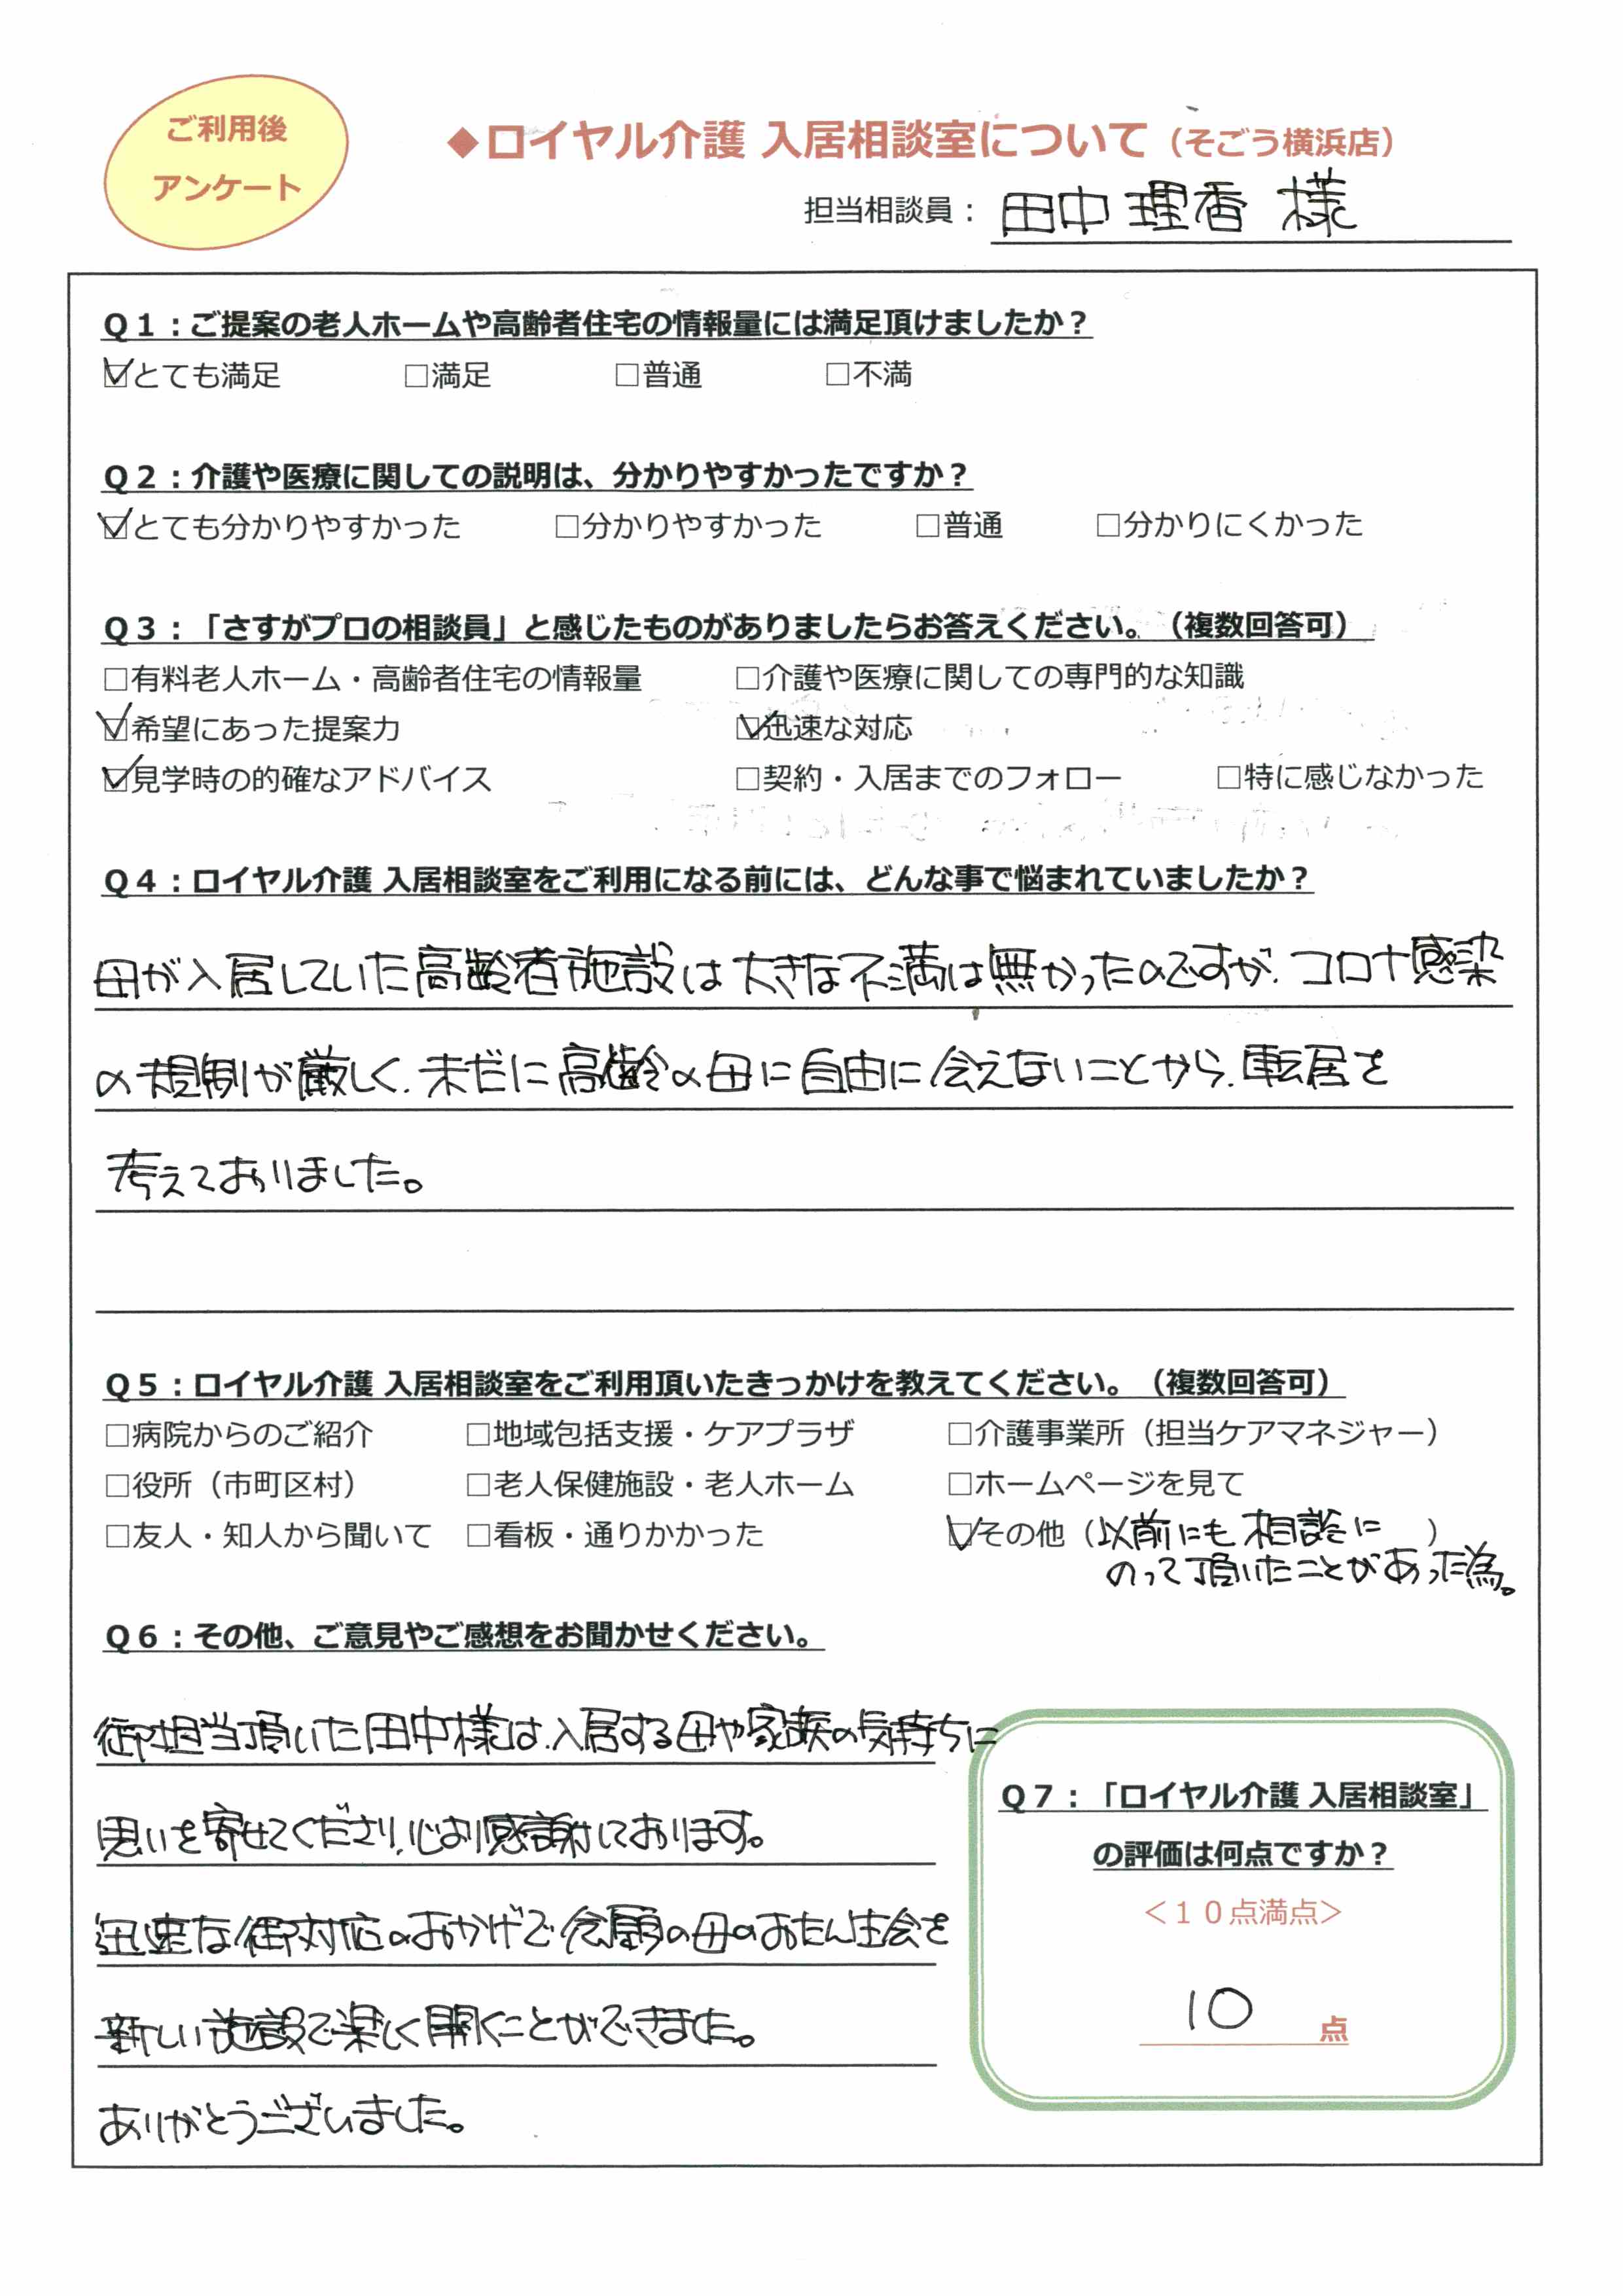 ご利用後
アンケート
◆ロイヤル介護 入居相談室について（そごう横浜店）
担当相談員： 田中 理香 様
Q１：ご提案の老人ホームや高齢者住宅の情報量には満足頂けましたか？
☑とても満足 □満足 □普通 □不満
Q２：介護や医療に関しての説明は、分かりやすかったですか？
☑とても分かりやすかった □分かりやすかった □普通 □分かりにくかった
Q３：「さすがプロの相談員」と感じたものがありましたらお答えください。（複数回答可）
□有料老人ホーム・高齢者住宅の情報量 □介護や医療に関しての専門的な知識
☑希望にあった提案力 ☑迅速な対応
☑見学時の的確なアドバイス □契約・入居までのフォロー □特に感じなかった
Q４：ロイヤル介護 入居相談室をご利用になる前には、どんな事で悩まれていましたか？
母が入居していた高齢者施設は大きな不満は無かったのですが、コロナ感染
の規制が厳しく、未だに高齢の母に自由に会えないことから、転居を
考えておりました。
Q５：ロイヤル介護 入居相談室をご利用頂いたきっかけを教えてください。（複数回答可）
□病院からのご紹介 □地域包括支援・ケアプラザ □介護事業所（担当ケアマネジャー）
□役所（市町区村） □老人保健施設・老人ホーム □ホームページを見て
□友人・知人から聞いて □看板・通りかかった ☑その他（以前にも相談に ）
のって頂いたことがあった為。
Q６：その他、ご意見やご感想をお聞かせください。
御担当頂いた田中様は、入居する母や家族の気持ちに
思いを寄せてくださり、心より感謝しております。
迅速な御対応のおかげで、念願の母のおたん生会を
新しい施設で楽しく開くことができました。
ありがとうございました。
Q７：「ロイヤル介護 入居相談室」
の評価は何点ですか？
＜１０点満点＞
10 点